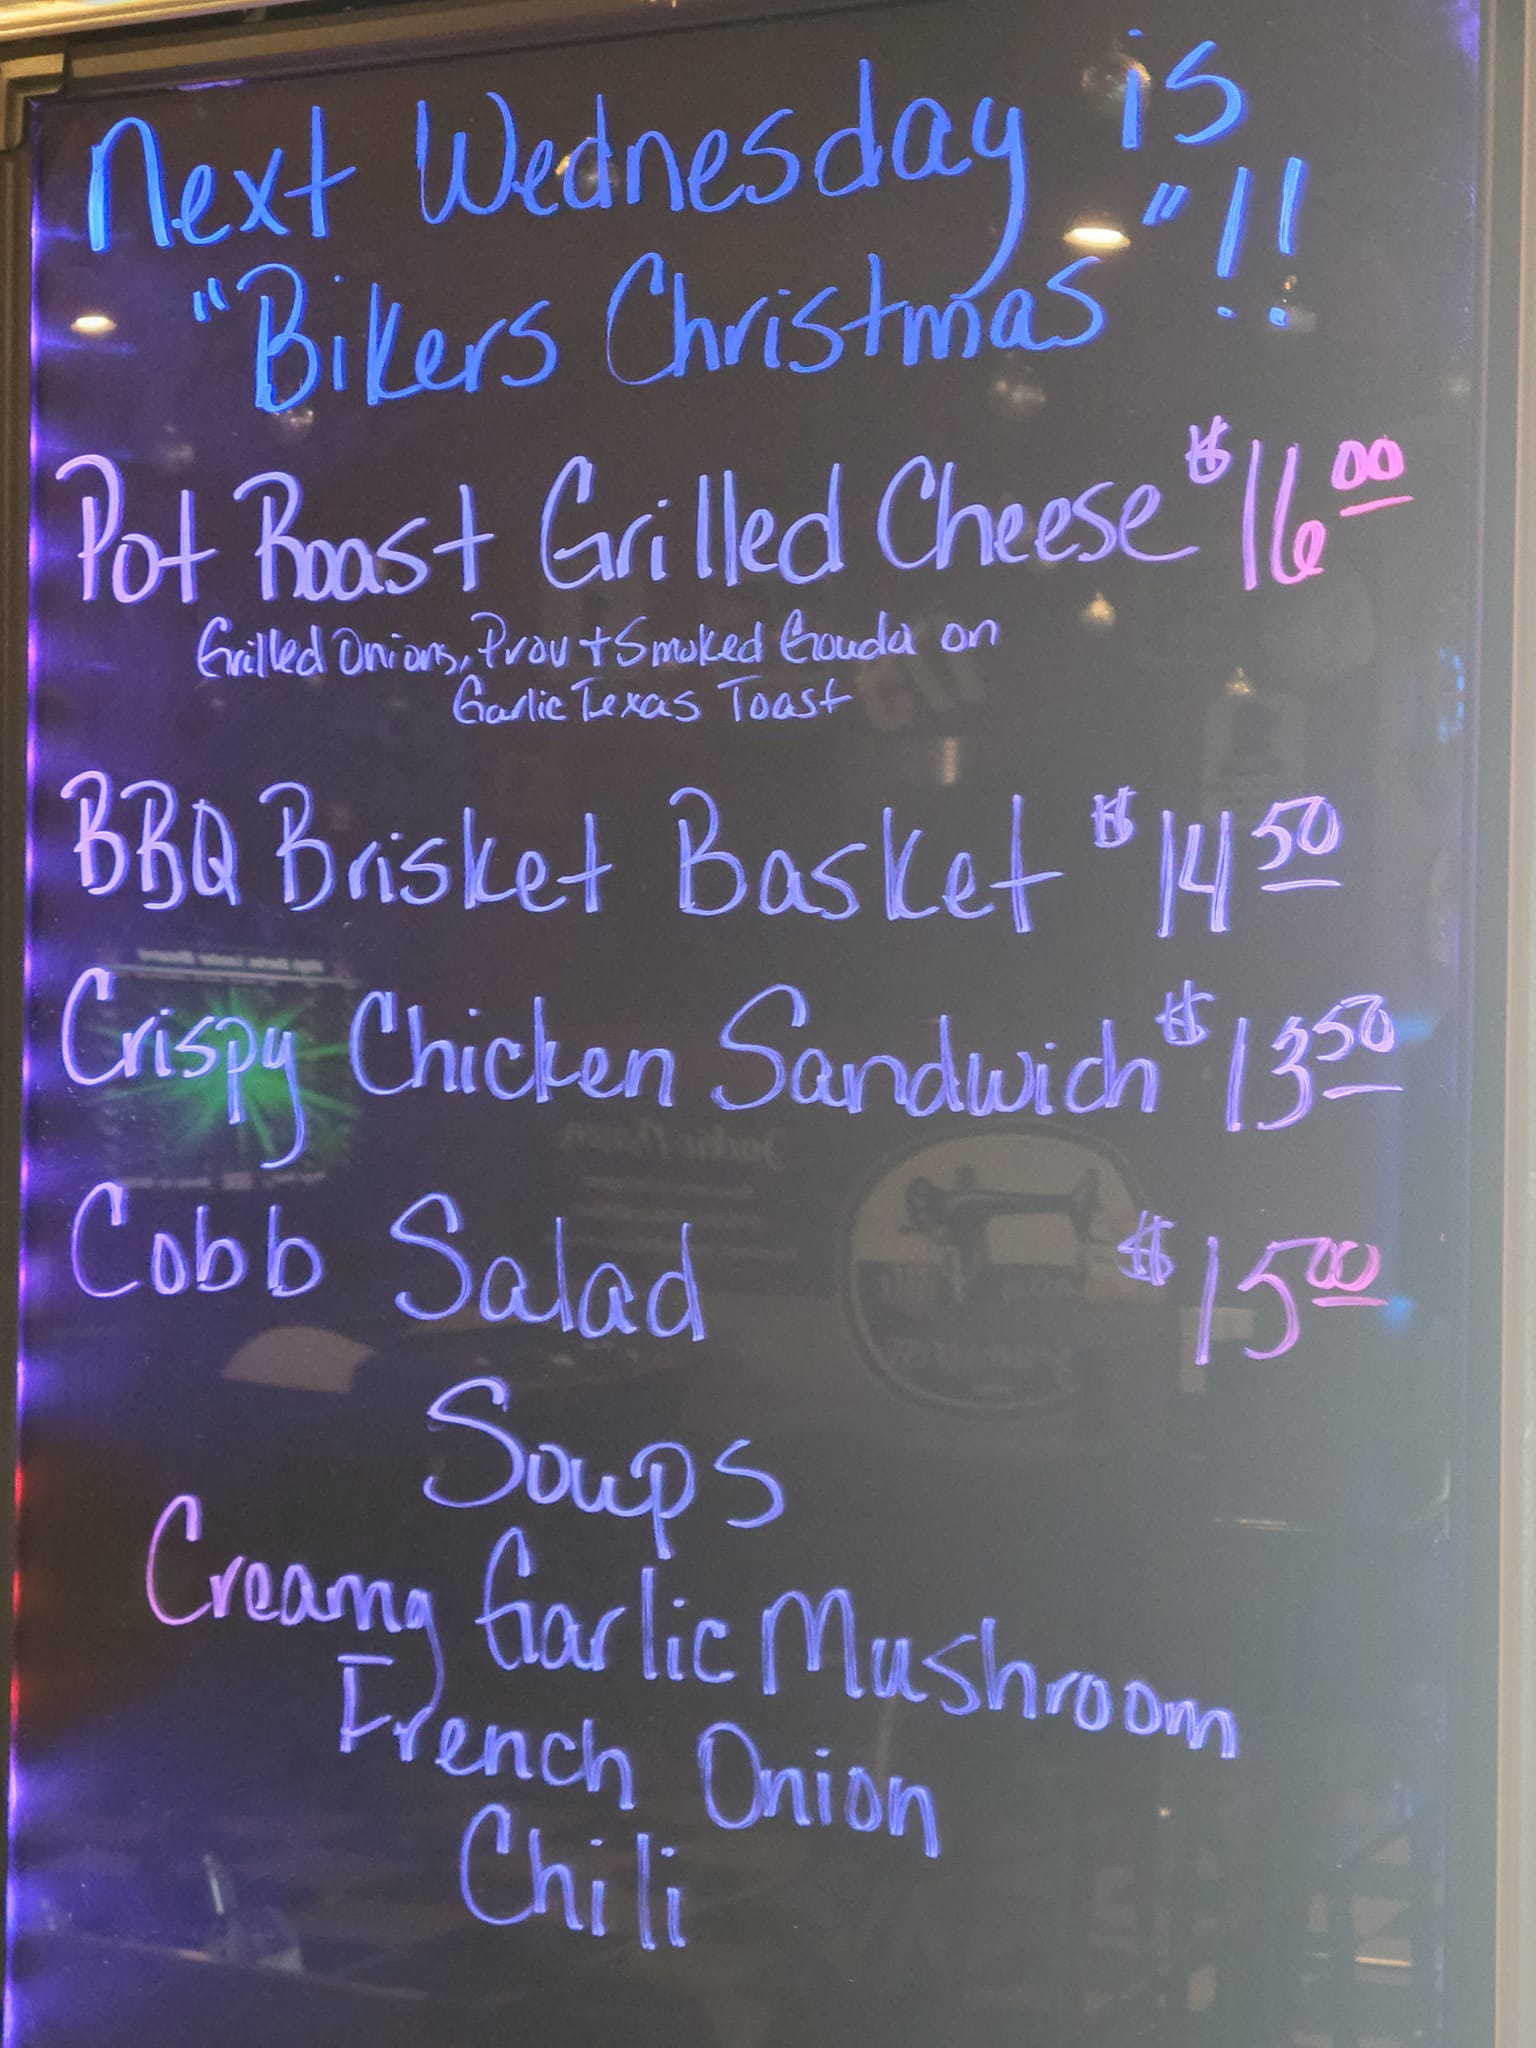 Next Wednesday is
"Bikers Christmas"!!
Pot Roast Grilled Cheese $16.00
Grilled Onions, Prov + Smoked Gouda on
Garlic Texas Toast
BBQ Brisket Basket $14.50
Crispy Chicken Sandwich $13.50
Cobb Salad $15.00
Soups
Creamy Garlic Mushroom
French Onion
Chili